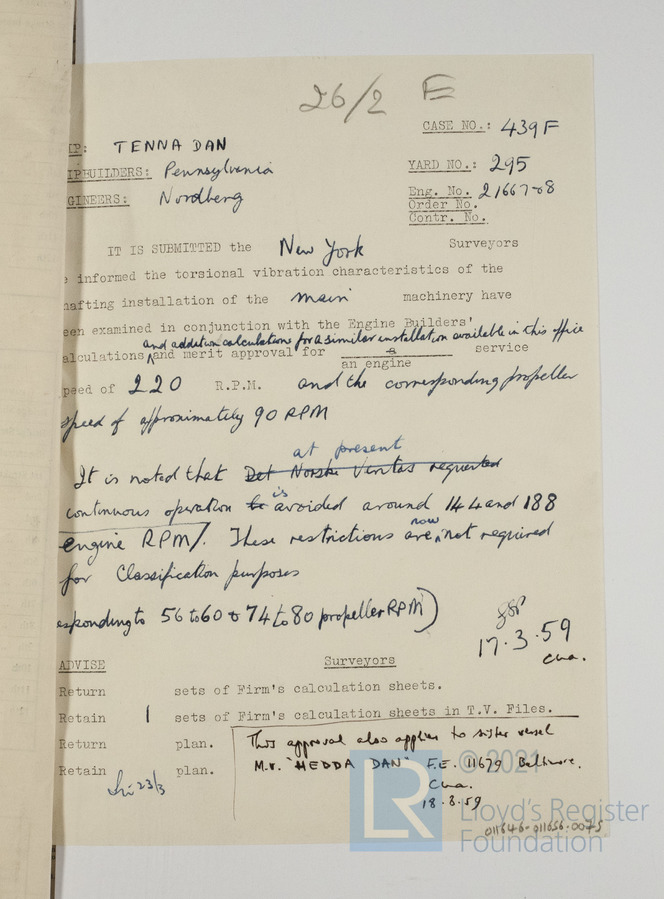 26/2 E
CASE NO.: 439F
IP: TENNA DAN
IPBUILDERS: Pennsylvania
YARD NO.: 295
GINEERS: Nordberg
Eng. No. 21667-68
Order No.
Contr. No.
IT IS SUBMITTED the New York Surveyors
e informed the torsional vibration characteristics of the
hafting installation of the main machinery have
een examined in conjunction with the Engine Builders'
and addition calculations for a similar installation available in this office
alculations and merit approval for a service
an engine
peed of 220 R.P.M. and the corresponding propeller
speed of approximately 90 RPM
at present
It is noted that Det Norske Veritas requested
continuous operation be is avoided around 144 and 188
engine RPM/. These restrictions are now not required
for Classification purposes
esponding to 56 to 60 & 74 to 80 propeller RPM)
17.3.59
Cha.
ADVISE Surveyors
Return sets of Firm's calculation sheets.
Retain 1 sets of Firm's calculation sheets in T.V. Files.
Return plan.
Retain plan.
23/3
This approval also applies to sister vessel
M.V. "HEDDA DAN" F.E. 11679 Baltimore.
Cha.
18.3.59
© 2021
LR
Lloyd's Register
Foundation
011646-011656-0075